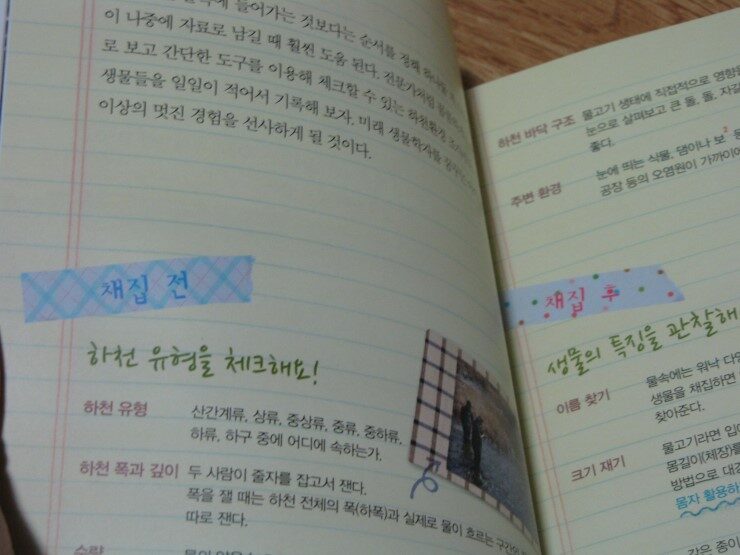 들어가는 것보다는 순서를 정해 하나
이 나중에 자료로 남길 때 훨씬 도움 된다. 전문가처럼
로 보고 간단한 도구를 이용해 체크할 수 있는 하천환경
생물들을 일일이 적어서 기록해 보자. 미래 생물학자를
이상의 멋진 경험을 선사하게 될 것이다.
채집 전
하천 유형을 체크해요!
하천 유형 산간계류, 상류, 중상류, 중류, 중하류,
하류, 하구 중에 어디에 속하는가.
하천 폭과 깊이 두 사람이 줄자를 잡고서 잰다.
폭을 잴 때는 하천 전체의 폭(하폭)과 실제로 물이 흐르는 구간의
따로 잰다.
수량
하천 바닥 구조 물고기 생태에 직접적으로 영향을
눈으로 살펴보고 큰 돌, 돌, 자갈
좋다.
주변 환경 눈에 띄는 식물, 댐이나 보2 등
공장 등의 오염원이 가까이에
채집 후
생물의 특징을 관찰해
이름 찾기 물속에는 워낙 다양
생물을 채집하면
찾아준다.
크기 재기 물고기라면 입에
몸길이(체장)를
방법으로 대강
몸자 활용하
같은 종이